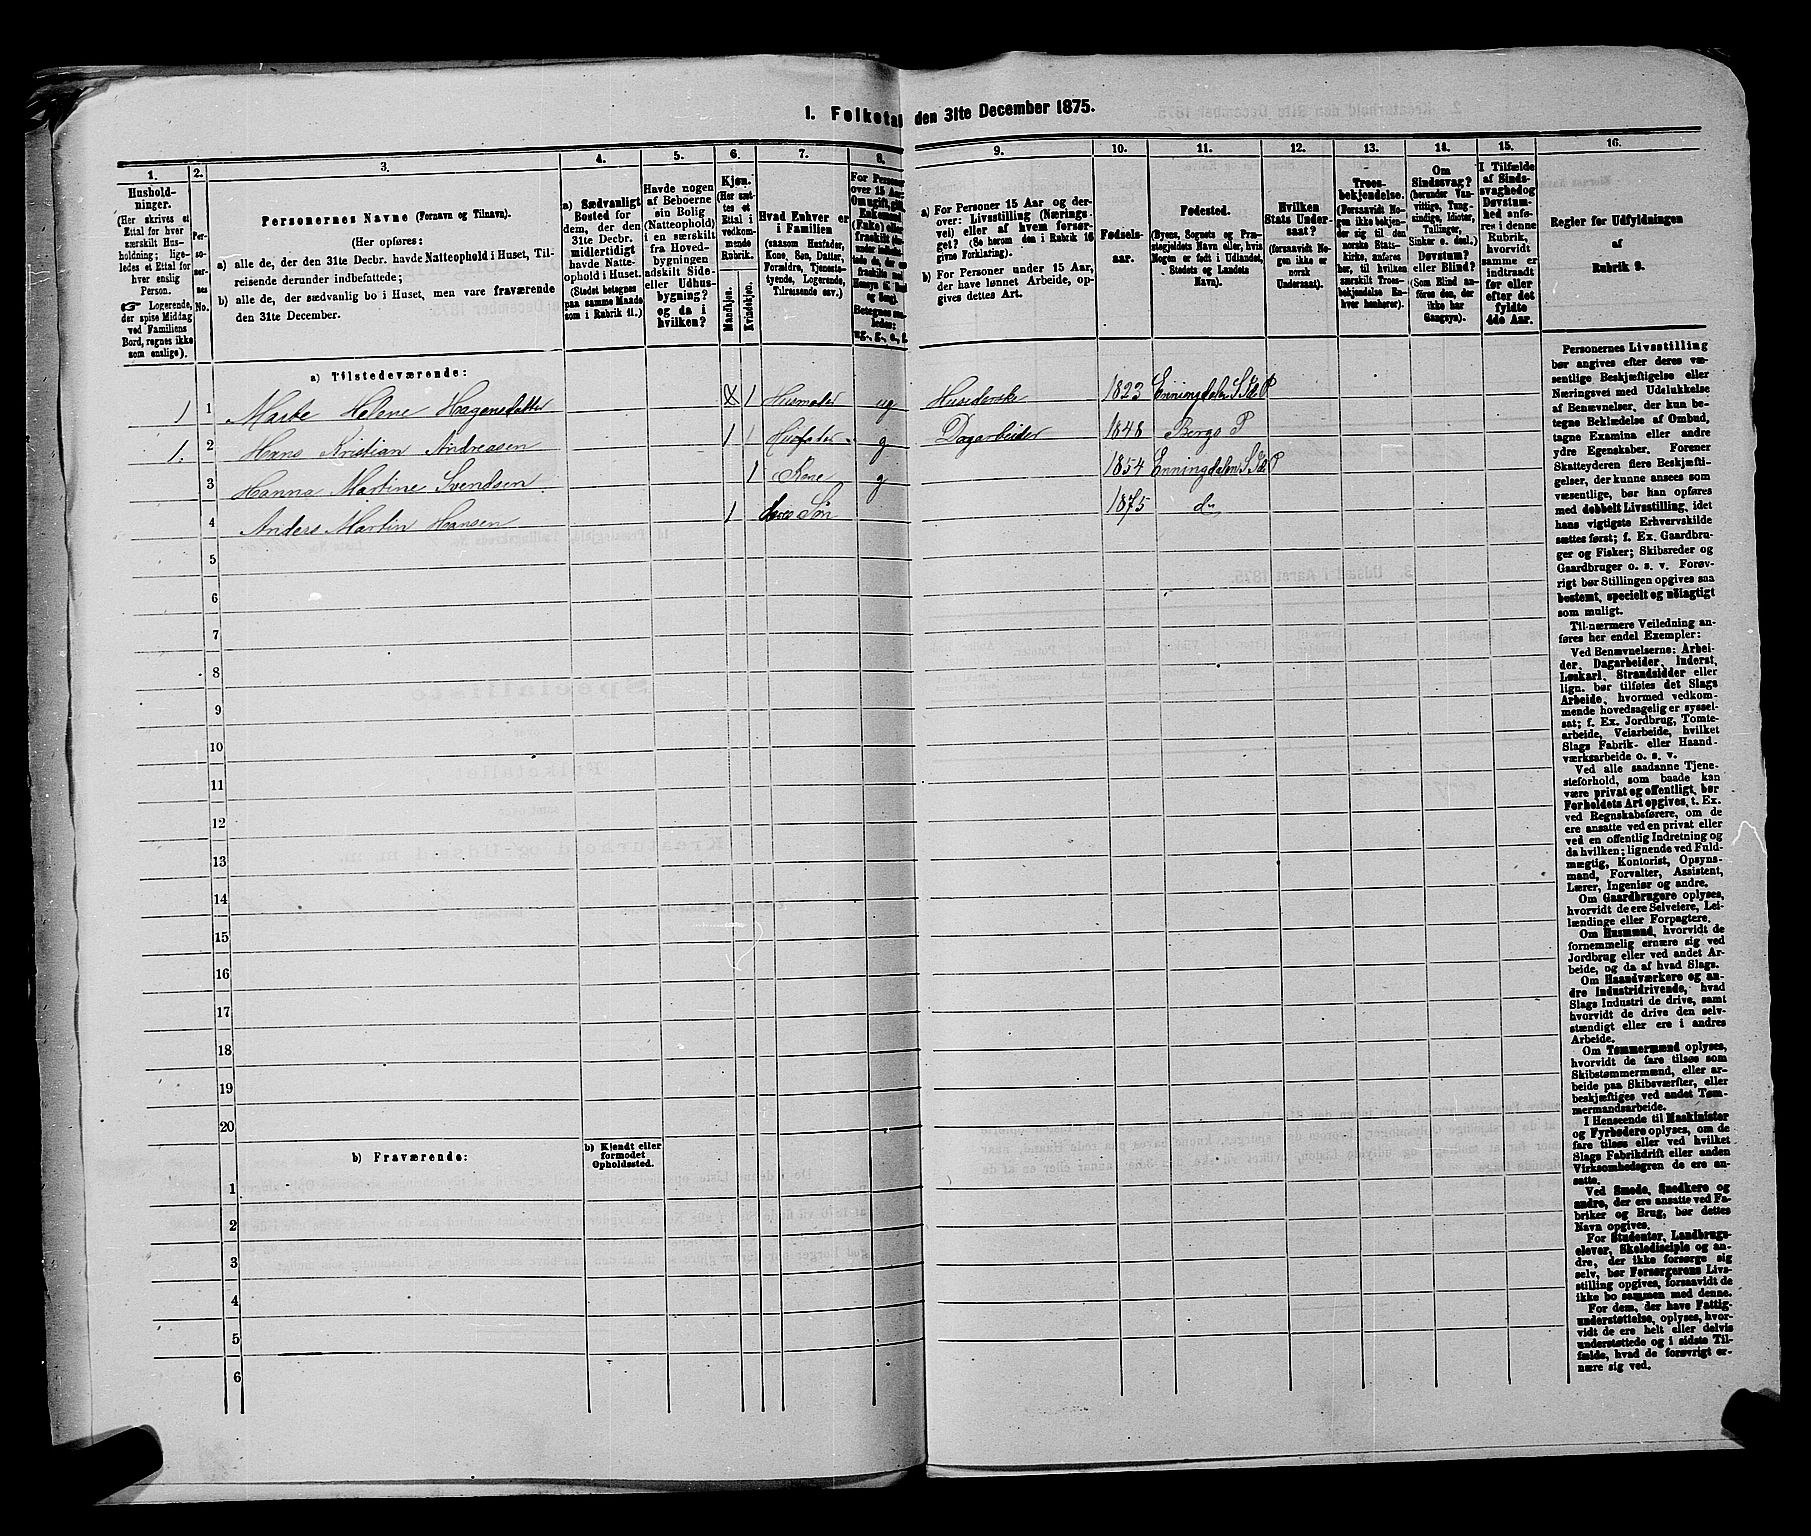 1. Folketal den 31te December 1875.
1.
Hushold-
ninger.
(Her skrives et
Ettal for hver
særskilt Hus-
holdning; lige-
ledes et Ettal for
hver enslig
Person.
Logerende,
der spise Middag
ved Familiens
Bord, regnes ikke
som enslige).
2.
Per-
so-
ner-
nes
No.
3.
Personernes Navne (Fornavn og Tilnavn).
(Her opføres:
a) alle de, der den 31te Decbr. havde Natteophold i Huset, Til-
reisende derunder indbefattede;
b) alle de, der sædvanlig bo i Huset, men vare fraværende
den 31te December.
4.
a) Sædvanligt
Bosted for
dem, der den
31te Decbr.
midlertidigt
havde Natte-
ophold i Huset.
(Stedet betegnes
paa samme Maade
som i Rubrik 11.)
5.
Havde nogen
af Beboerne
sin Bolig
(Natteophold)
i en særskilt
fra Hoved-
bygningen
adskilt Side-
eller Udhus-
bygning?
og da i
hvilken?
6.
Kjøn.
(Her sæt-
tes et
Ettal i
vedkom-
mende
Rubrik.
Mandkjøn.
Kvindekjøn.
7.
Hvad Enhver er
i Familien
(saasom Husfader,
Kone, Søn, Datter,
Forældre, Tjeneste-
tyende, Logerende,
Tilreisende osv.)
8.
For Personer
over 15 Aar:
Om ugift, gift,
Enkemand
(Enke) eller
fraskilt
Betegnes saa-
ledes:
ug., g., e., f.
9.
a) For Personer 15 Aar og der-
over: Livsstilling (Nærings-
vei) eller af hvem forsør-
get? (Se herom den i Rubrik 16
givne Forklaring).
b) For Personer under 15 Aar,
der have lønnet Arbeide, op-
gives dettes Art.
10.
Fødsels-
aar.
11.
Fødested.
(Byens, Sognets og Præ-
stegjeldets Navn eller, hvis
Nogen er født i Udlandet,
Stedets og Landets
Navn).
12.
Hvilken
Stats Under-
saat?
(forsaavidt No-
gen ikke er
norsk
Undersaat).
13.
Troes-
bekjendelse.
(Forsaavidt No-
gen ikke bekjen-
der sig til den
norske Stats-
kirke, anføres
her, til hvilken
særskilt Troes-
bekjendelse En-
hver henhører).
14.
Om
Sindssvag?
(herunder Van-
vittige, Tung-
sindige, Idioter,
Tullinger,
Sinker o. desl.).
Døvstum?
eller Blind?
(Som Blind an-
føres den, der
ikke har
Gangsyn).
15.
I Tilfælde
af Sinds-
svaghed og
Døvstum-
hed anfø-
res i denne
Rubrik,
hvorvidt
samme er
indtraadt
før eller
efter det
fyldte
4de Aar.
16.
Regler for Udfyldningen
af
Rubrik 9.
a) Tilstedeværende:
1 1 Marte Helene Hagensdatter X 1 Husmoder ug Husiderske 1823 Enningdalen S Id. P
1. 2 Hans Kristian Andreasen 1 1 Husfader g Dagarbeider 1848 Bergs P
3 Hanna Martine Svendsen 1 Kone g 1854 Enningdalen S Id. P
4 Anders Martin Hansen 1 deres Søn 1875 do
5
6
7
8
9
10
11
12
13
14
15
16
17
18
19
20
b) Fraværende:
b) Kjendt eller
formodet
Opholdssted.
1
2
3
4
5
6
Personernes Livsstilling
bør angives efter deres væ-
sentlige Beskjæftigelse eller
Næringsvei med Udelukkelse
af Benævnelser, der kun be-
tegne Beklædelse af Ombud,
tagne Examina eller andre
ydre Egenskaber. Forener
Skatteyderen flere Beskjæfti-
gelser, der kunne ansees som
væsentlige, bør han opføres
med dobbelt Livsstilling, idet
hans vigtigste Erhvervskilde
sættes først; f. Ex. Gaardbru-
ger og Fisker; Skibsreder og
Gaardbruger o. s. v. Forøv-
rigt bør Stillingen opgives saa
bestemt, specielt og nøiagtigt
som muligt.
Til nærmere Veiledning an-
føres her endel Exempler:
Ved Benævnelserne: Arbei-
der, Dagarbeider, Inderst,
Løskarl, Strandsidder eller
lign. bør tilføies det Slags
Arbeide, hvormed vedkom-
mende hovedsagelig er syssel-
sat; f. Ex. Jordbrug, Tomte-
arbeide, Veiarbeide, hvilket
Slags Fabrik- eller Haand-
værksarbeide o. s. v.
Ved alle saadanne Tjene-
steforhold, som baade kan
være privat og offentligt, bør
Forholdets Art opgives, t. Ex.
ved Regnskabsførere, om de
ere ansatte ved en privat eller
ved en offentlig Indretning og
da hvilken; lignende ved Fuld-
mægtig, Kontorist, Opsyns-
mand, Forvalter, Assistent,
Lærer, Ingeniør og andre.
Om Gaardbrugere oplyses,
hvorvidt de ere Selveiere, Lei-
lændinge eller Forpagtere.
Om Husmænd, hvorvidt de
fornemmelig ernære sig ved
Jordbrug eller ved andet Ar-
beide, og da af hvad Slags.
Om Haandværkere og an-
dre Industridrivende, hvad
Slags Industri de drive, samt
hvorvidt de drive den selv-
stændigt eller ere i andres
Arbeide.
Om Tømmermænd oplyses,
hvorvidt de fare tilsøs som
Skibstømmermænd, eller ar-
beide paa Skibsværfter, eller
beskjæftiges ved andet Tøm-
mermandsarbeide.
I Henseende til Maskinister
og Fyrbødere oplyses, om de
fare tilsøs eller ved hvilket
Slags Fabrikdrift eller anden
Virksomhedsgren de ere an-
satte.
Ved Smede, Snedkere og
andre, der ere ansatte ved Fa-
briker og Brug, bør dettes
Navn opgives.
For Studenter, Landbrugs-
elever, Skoledisciple og an-
dre, der ikke forsørge sig
selv, bør Forsørgerens Livs-
stilling opgives, forsaavidt de
ikke bo sammen med denne.
For dem, der have Fattig-
understøttelse, oplyses, hvor-
vidt de ere helt eller delvis
understøttede og i sidste Til-
fælde, hvad de forøvrigt er-
nære sig ved.